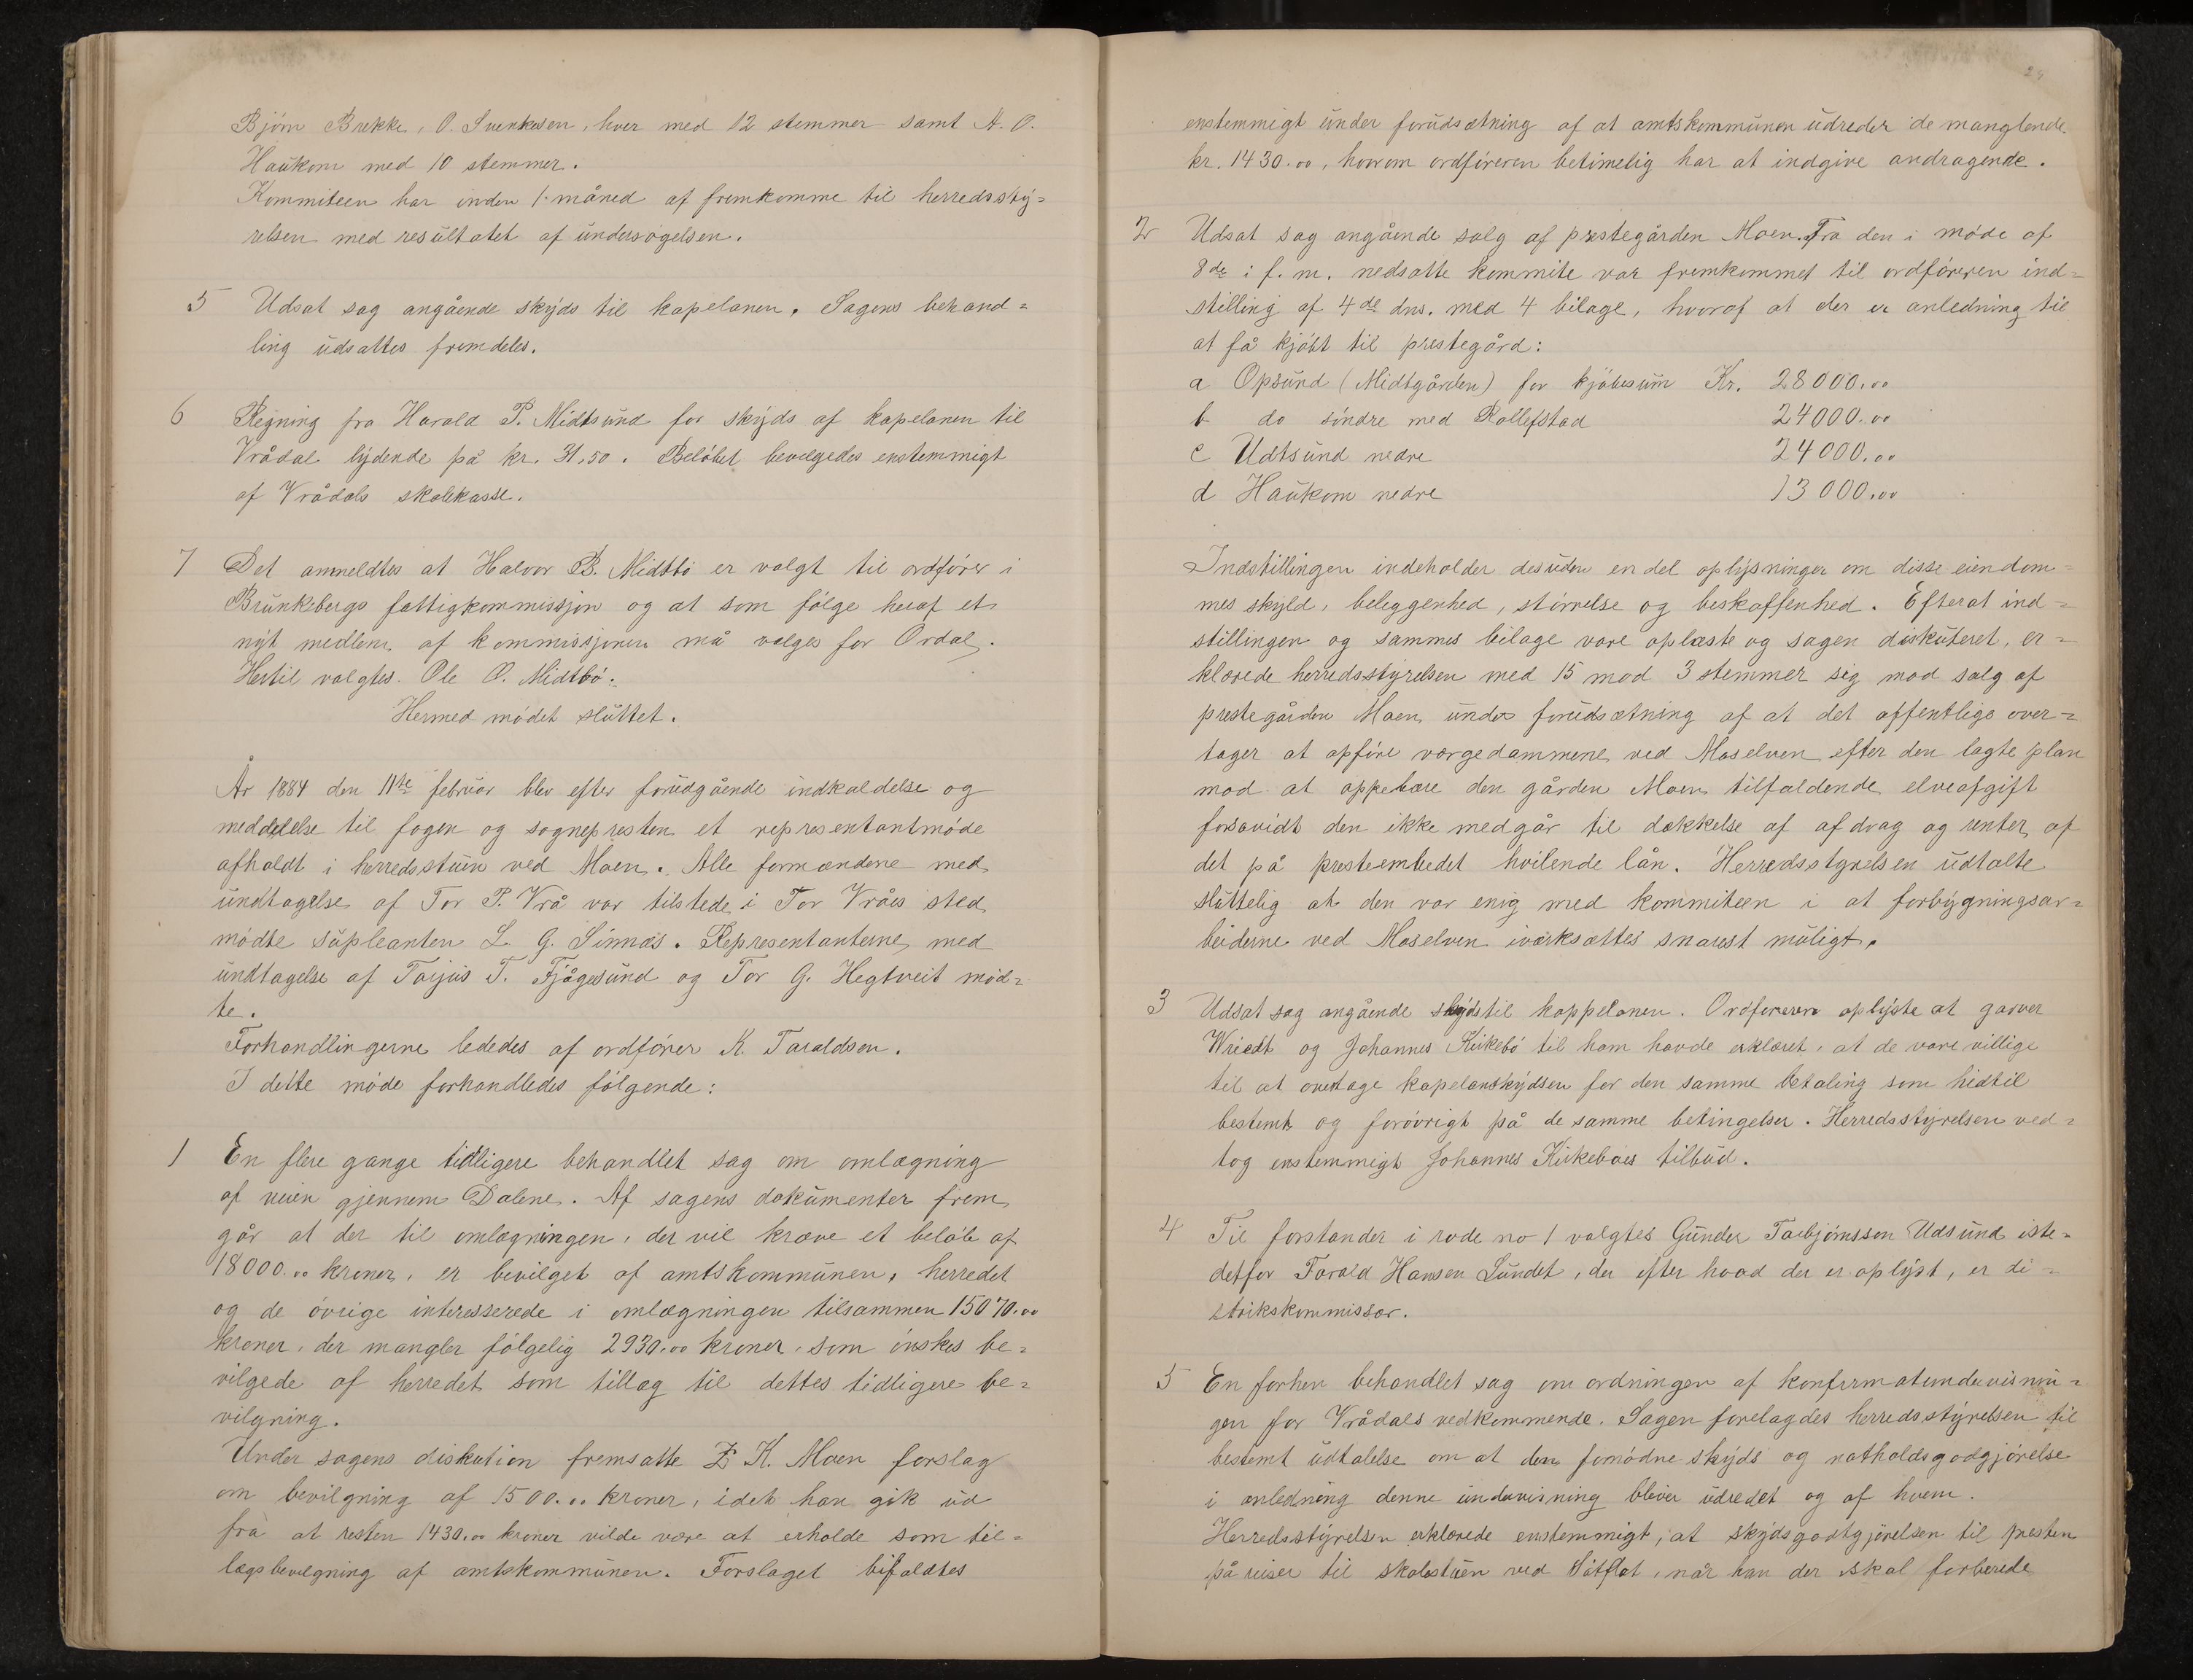 Bjørn Brekke, O. Svenkesen, hver med 12 stemmer samt A. O.
Haukom med 10 stemmer.
Kommiteen har inden 1 måned at fremkomme til herredssty=
relsen med resultatet af undersøgelsen.
5 Udsat sag angående skyds til kapelanen. Sagens behand=
ling udsattes fremdeles.
6 Regning fra Harald P. Midtsund for skyds af kapelanen til
Vrådal lydende på kr. 31,50. Beløbet bevilgedes enstemmigt
af Vrådals skolekasse.
7 Det anmeldtes at Halvor B. Midtbø er valgt til ordfører i
Brunkebergs fattigkommissjon og at som følge heraf et
nyt medlem af kommissjonen må valges for Ordal.
Hertil valgtes Ole O. Midtbø.
Hermed mødet sluttet.
År 1884 den 11te februar blev efter forudgående indkaldelse og
meddelelse til fogen og sognepresten et representantmøde
afholdt i herredsstuen ved Moen. Alle formændene med
undtagelse af Tor P. Vrå var tilstede i Tor Vråes sted
mødte supleanten L. G. Sinnes. Representanterne med
undtagelse af Taijus T. Fjågesund og Tor G. Hegtveit mød=
te.
Forhandlingerne lededes af ordfører K. Taraldsen.
I dette møde forhandledes følgende:
1 En flere gange tidligere behandlet sag om omlægning
af veien gjennem Dalene. Af sagens dokumenter frem
går at der til omlægningen, der vil kræve et beløb af
18000.00 kroner, er bevilget af amtskommunen, herredet
og de øvrige interesserede i omlægningen tilsammen 15070.00
kroner, der mangler følgelig 2930.00 kroner, som ønskes be=
vilgede af herredet som tillæg til dettes tidligere be=
vilgning.
Under sagens diskution fremsatte K. Moen forslag
om bevilgning af 1500.00 kroner, idet han gik ud
fra at resten 1430.00 kroner vilde være at erholde som til=
lægsbevilgning af amtskommunen. Forslaget bifaldtes
29
enstemmigt under forudsætning af at amtskommunen udreder de manglende
kr. 1430.00, hvorom ordføreren betimelig har at indgive andragende.
2 Udsat sag angående salg af prestegården Moen. Fra den i møde af
8de i f. m. nedsatte kommite var fremkommet til ordføreren ind=
stilling af 4de dns. med 4 bilage, hvoraf at der er anledning til
at få kjøbt til prestegård:
a Opsund (Midtgården) for kjøbesum Kr. 28000.00
b do søndre med Rollefstad 24000.00
c Udtsund nedre 24000.00
d Haukom nedre 13000.00
Indstillingen indeholder desuden en del oplysninger om disse eiendom=
mes skyld, beliggenhed, størrelse og beskaffenhed. Efterat ind=
stillingen og sammes bilage vare oplæste og sagen diskuteret, er=
klærede herredsstyrelsen med 15 mod 3 stemmer sig mod salg af
prestegården Moen under forudsætning af at det offentlige over=
tager at opføre værgedammene ved Moselven efter den lagte plan
mod at oppebære den gården Moen tilfaldende elveafgift
forsavidt den ikke medgår til dækkelse af afdrag og renter af
det på presteembedet hvilende lån. Herredsstyrelsen udtalte
sluttelig at den var enig med kommiteen i at forbygningsar=
beiderne ved Moselven iværksættes snarest muligt.
3 Udsat sag angående skyds til kappelanen. Ordføreren oplyste at garver
Wriedt og Johannes Kirkebø til ham havde erklæret, at de vare villige
til at overtage kapelanskydsen for den samme betaling som hidtil
bestemt og forøvrigt på de samme betingelser. Herredsstyrelsen ved=
tog enstemmigt Johannes Kirkebøes tilbud.
4 Til forstander i rode no 1 valgtes Gunder Torbjørnsson Udsund iste=
detfor Torald Hansen Sundet, der efter hvad der er oplyst, er di=
strikskommissær.
5 En forhen behandlet sag om ordningen af konfirmatundervisnin=
gen for Vrådals vedkommende. Sagen forelagdes herredsstyrelsen til
bestemt udtalelse om at den fornødne skyds og natholdsgodgjørelse
i anledning denne undervisning bliver udredet og af hvem.
Herredsstyrelsen erklærede enstemmigt, at skydsgodtgjørelsen til presten
på reiser til skolestuen ved Såtflot, når han der skal forberede